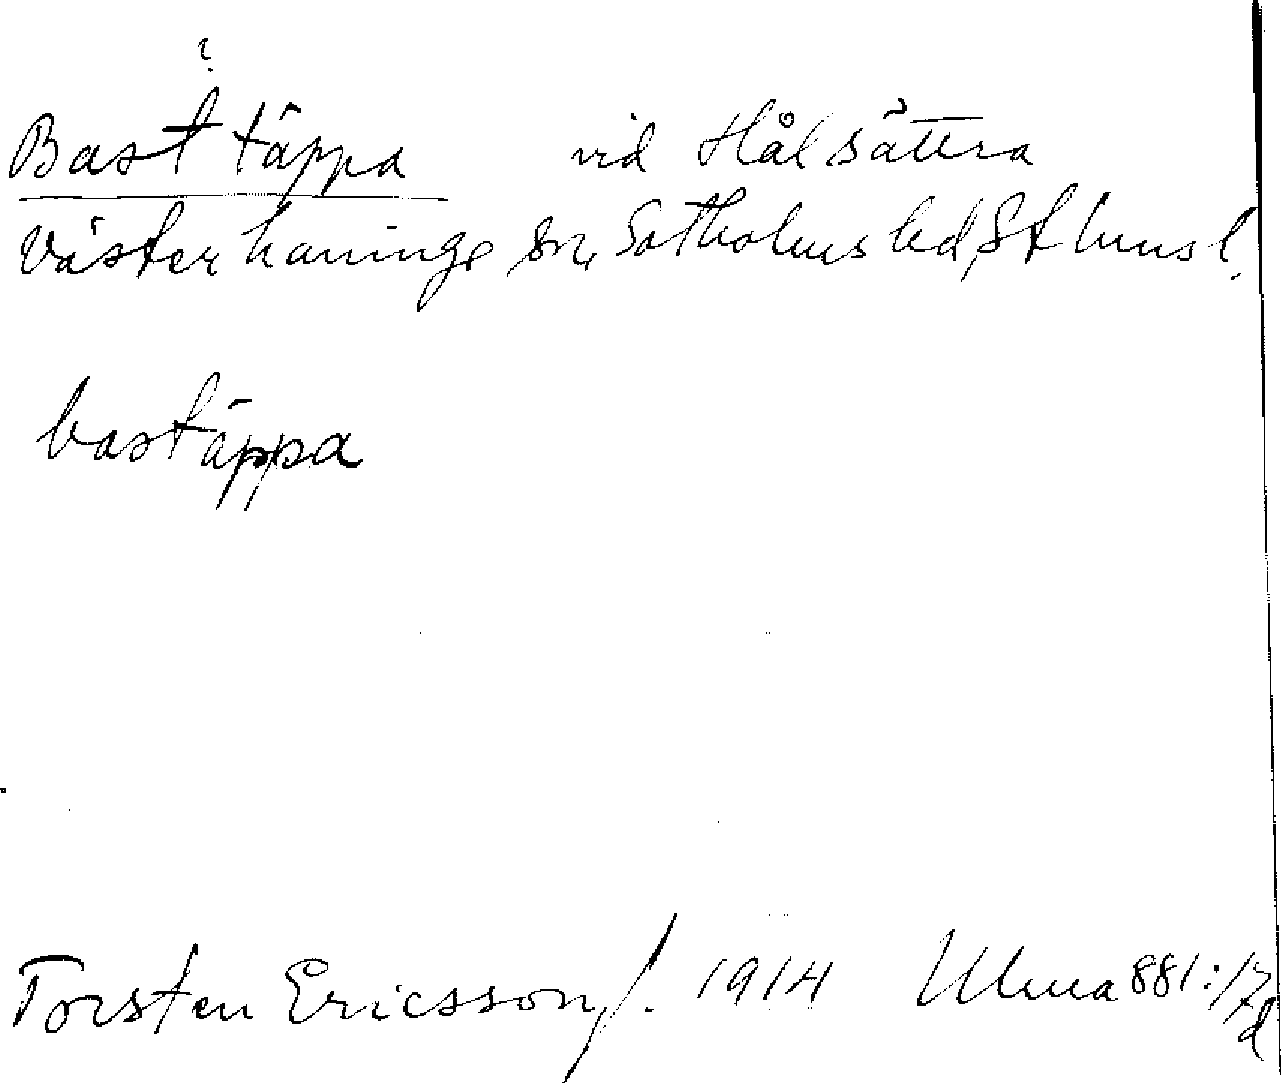 ?
Bast täppa vid Hålsättra
Västerhaninge sn, Sotholms hd, Sthms l.
bastäppa
Torsten Ericsson, f. 1914 Ulma 881:17 d